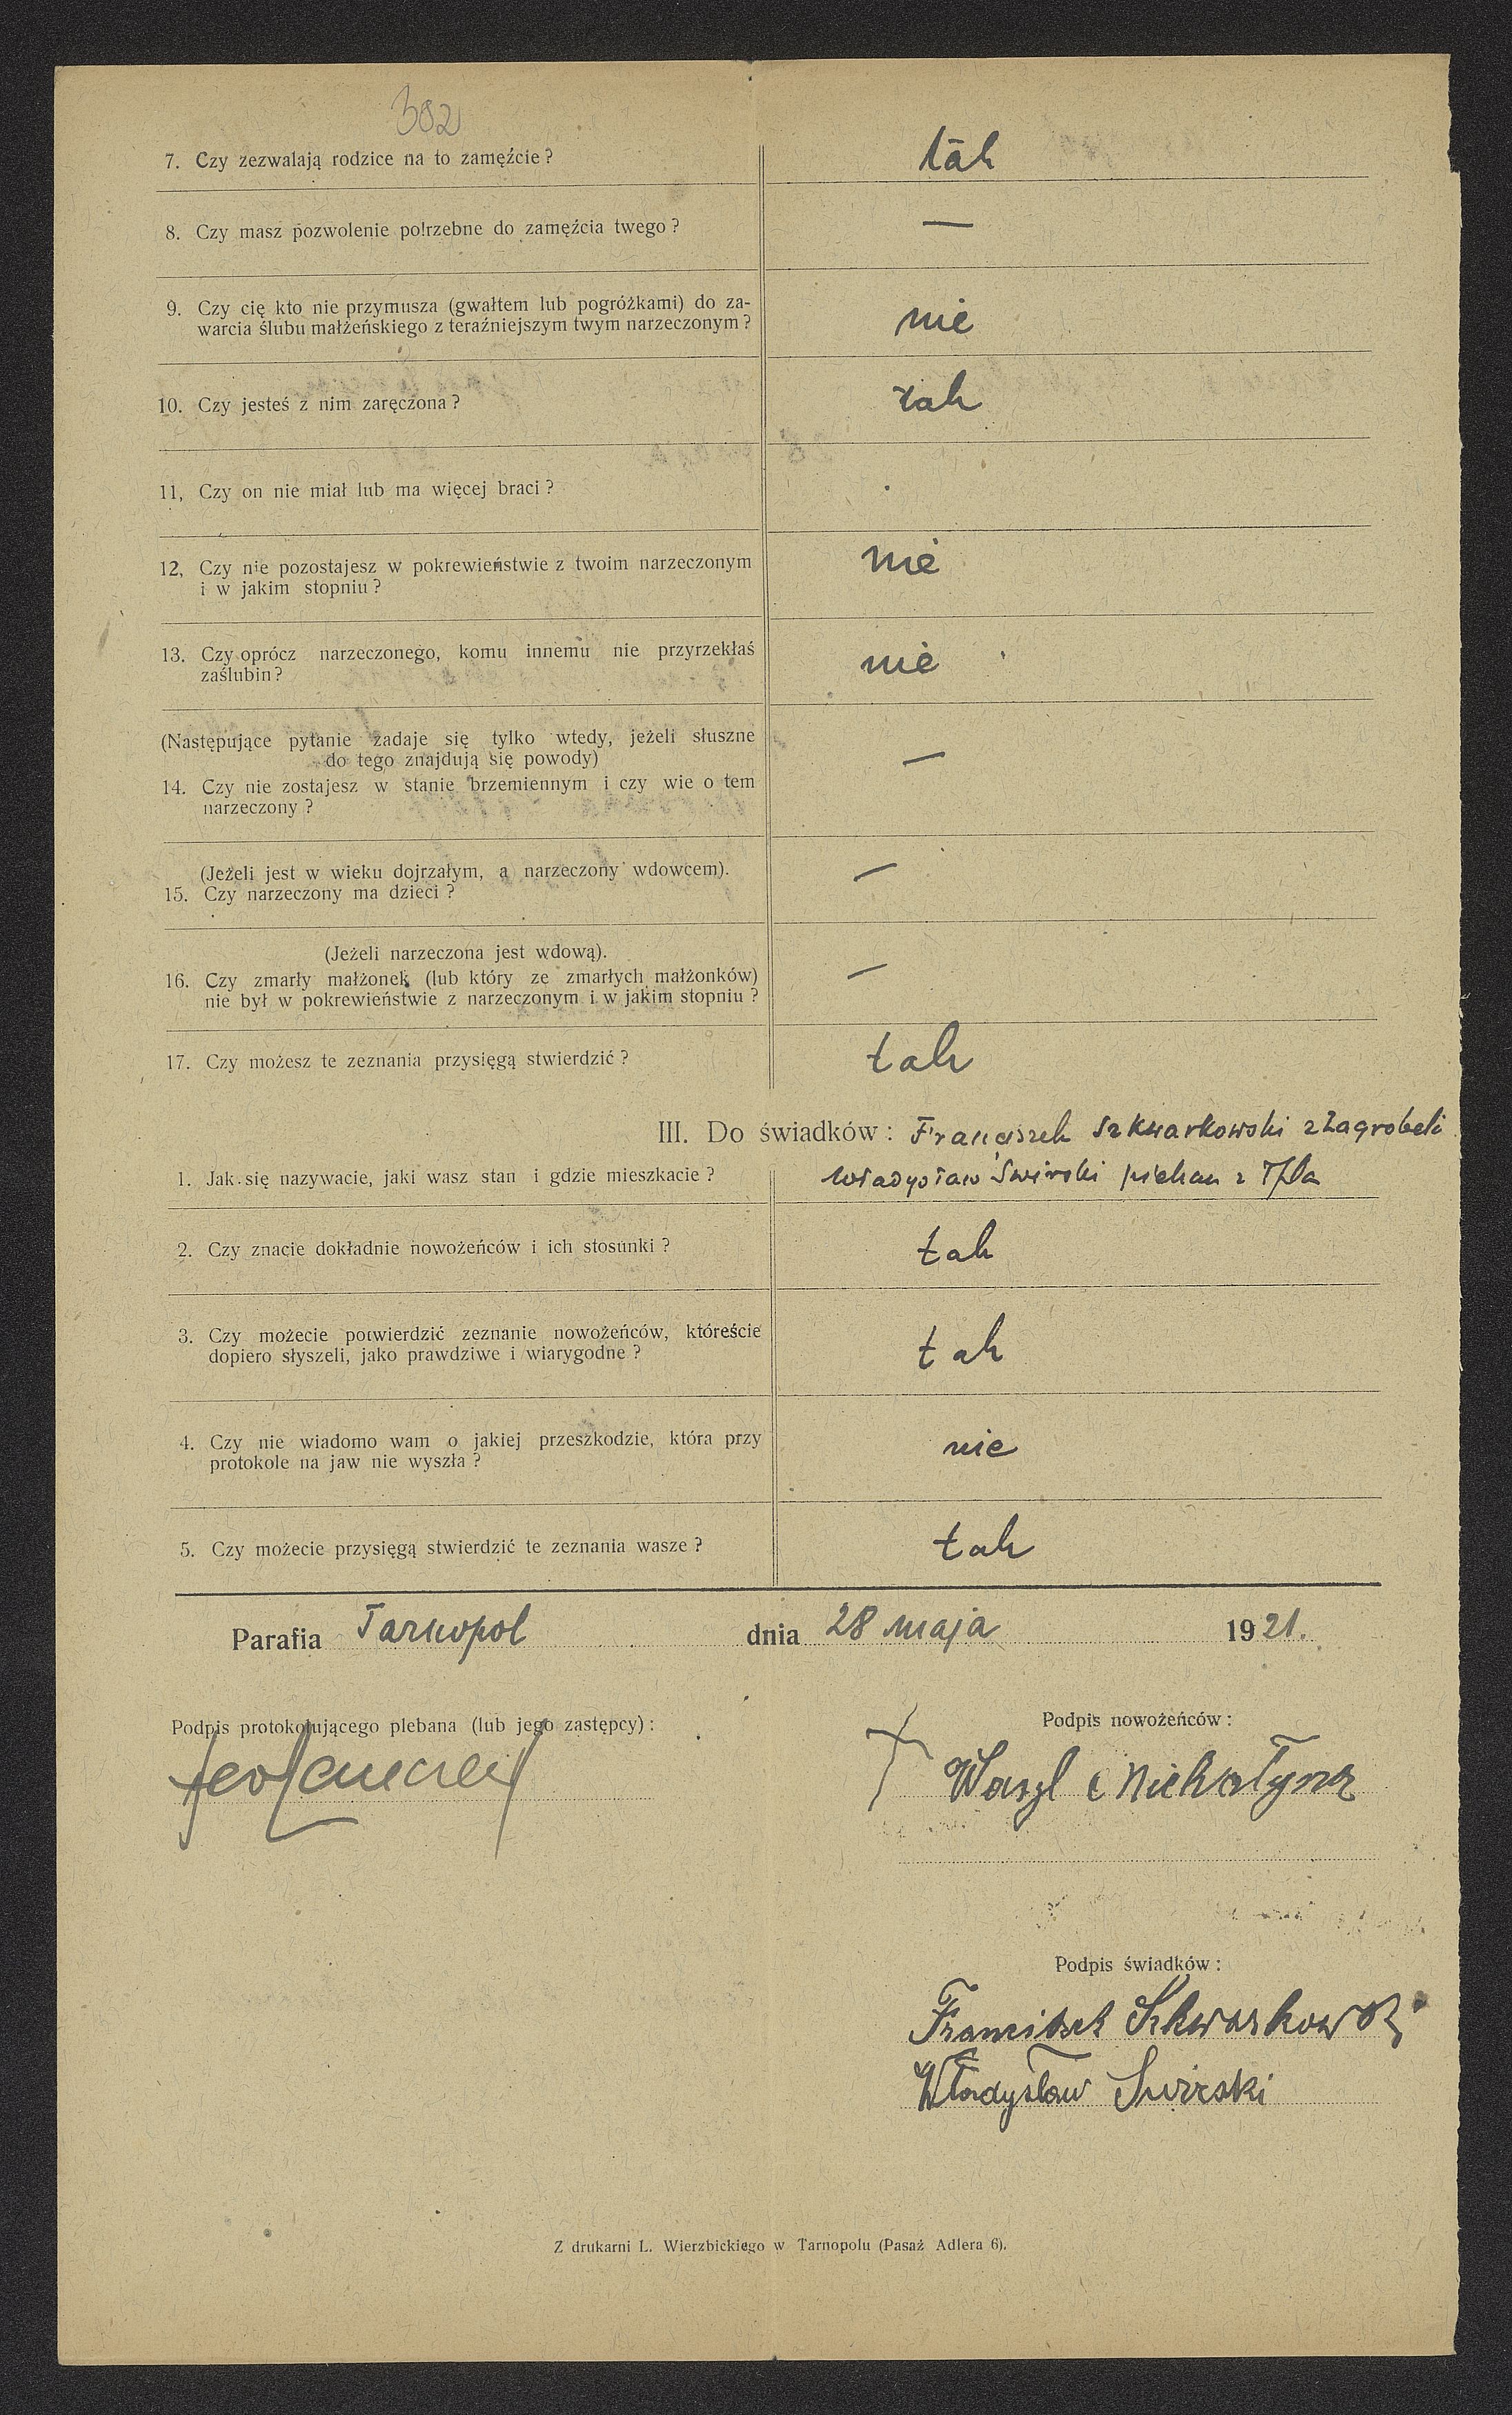 302
7. Czy zezwalają rodzice na to zamęźcie? tak
8. Czy masz pozwolenie potrzebne do zamęźcia twego? —
9. Czy cię kto nie przymusza (gwałtem lub pogróżkami) do za-
warcia ślubu małżeńskiego z teraźniejszym twym narzeczonym? nie
10. Czy jesteś z nim zaręczona? tak
11, Czy on nie miał lub ma więcej braci?
12, Czy nie pozostajesz w pokrewieństwie z twoim narzeczonym
i w jakim stopniu? nie
13. Czy oprócz narzeczonego, komu innemu nie przyrzekłaś
zaślubin? nie
(Następujące pytanie zadaje się tylko wtedy, jeżeli słuszne
do tego znajdują się powody)
14. Czy nie zostajesz w stanie brzemiennym i czy wie o tem
narzeczony? —
(Jeżeli jest w wieku dojrzałym, a narzeczony wdowcem).
15. Czy narzeczony ma dzieci? —
(Jeżeli narzeczona jest wdową).
16. Czy zmarły małżonek (lub który ze zmarłych małżonków)
nie był w pokrewieństwie z narzeczonym i w jakim stopniu? —
17. Czy możesz te zeznania przysięgą stwierdzić? tak
III. Do świadków: Franciszek Szkwarkowski z Zagrobeli
1. Jak się nazywacie, jaki wasz stan i gdzie mieszkacie? Władysław Swirski piekarz z
2. Czy znacie dokładnie nowożeńców i ich stosunki? tak
3. Czy możecie potwierdzić zeznanie nowożeńców, któreście
dopiero słyszeli, jako prawdziwe i wiarygodne? tak
4. Czy nie wiadomo wam o jakiej przeszkodzie, która przy
protokole na jaw nie wyszła? nie
5. Czy możecie przysięgą stwierdzić te zeznania wasze? tak
Parafia Tarnopol dnia 28 maja 1921.
Podpis protokołującego plebana (lub jego zastępcy):
Podpis nowożeńców:
Wasyl Michałyna
Podpis świadków:
Franciszek Szkwarkowski
Władysław Swirski
Z drukarni L. Wierzbickiego w Tarnopolu (Pasaż Adlera 6).